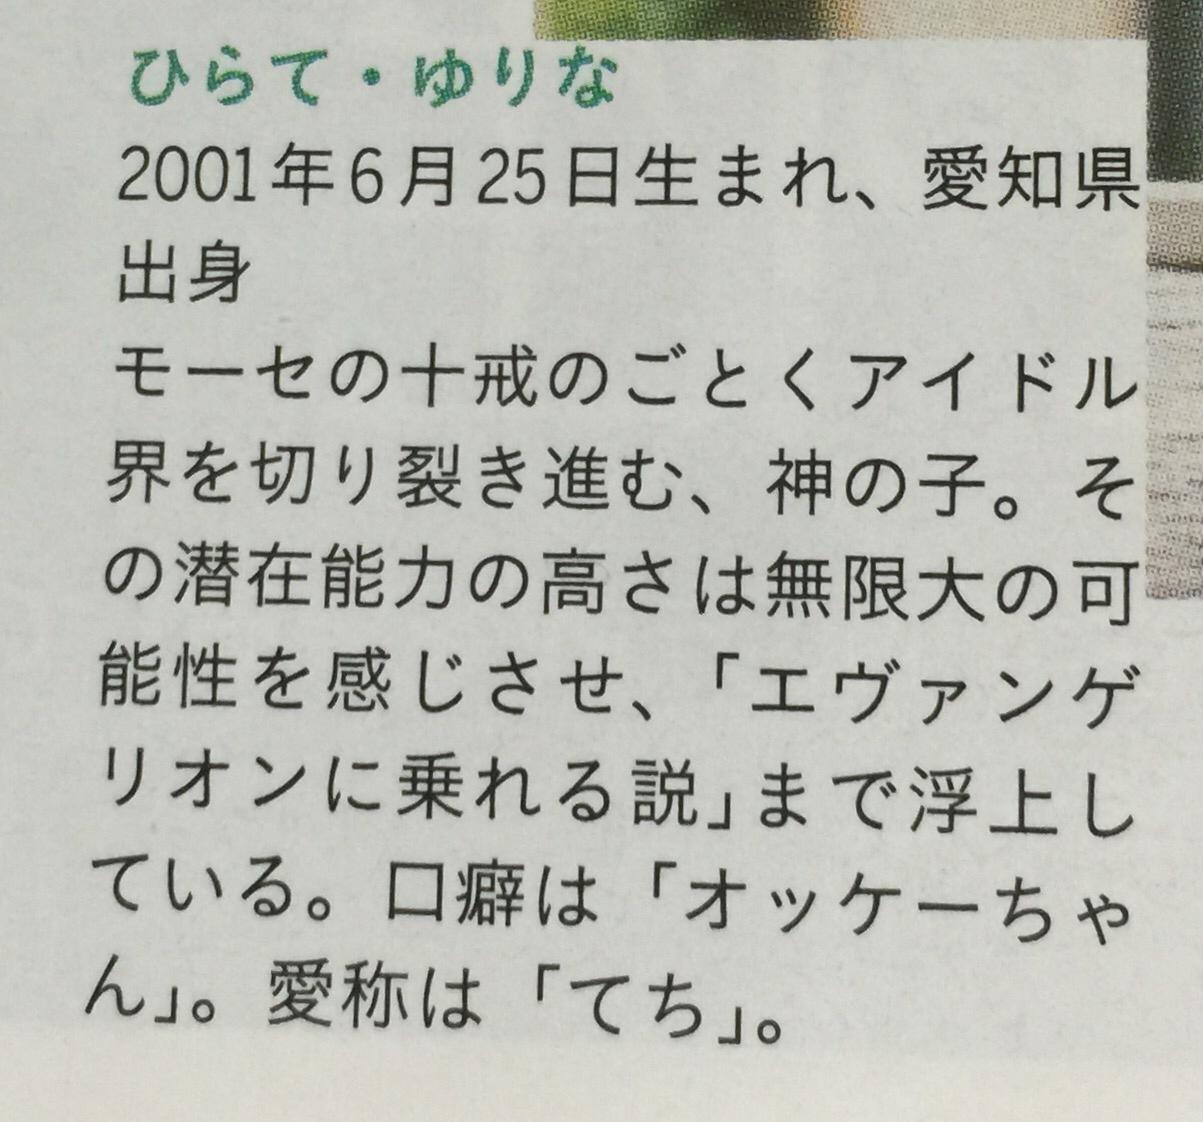 ひらて・ゆりな
2001年6月25日生まれ、愛知県
出身
モーセの十戒のごとくアイドル
界を切り裂き進む、神の子。そ
の潜在能力の高さは無限大の可
能性を感じさせ、「エヴァンゲ
リオンに乗れる説」まで浮上し
ている。口癖は「オッケーちゃ
ん」。愛称は「てち」。